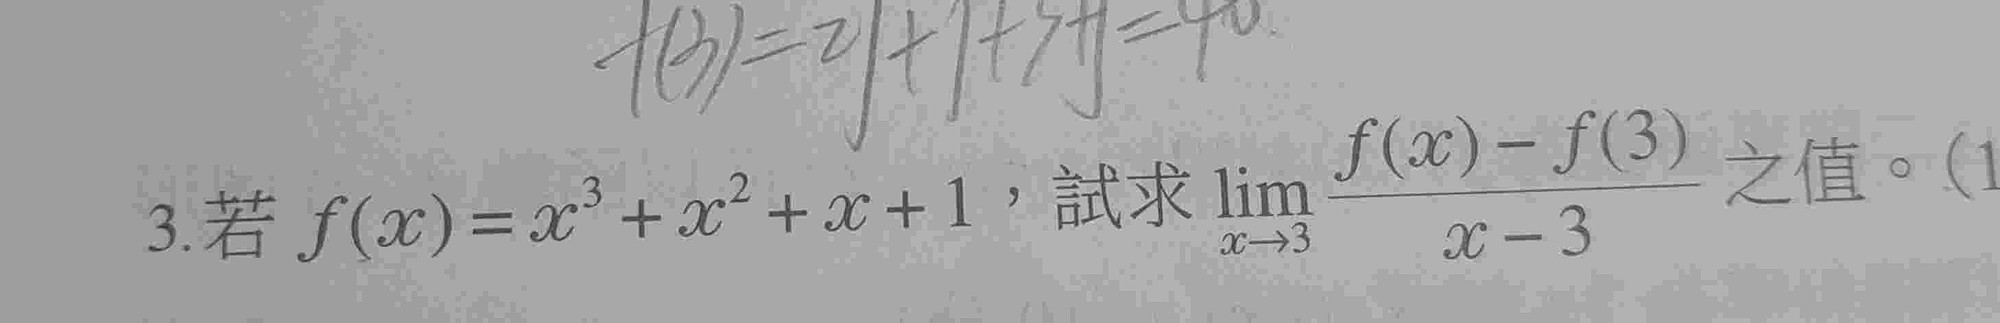 f(3)=27+9+3+1=40.
3.若 f(x)=x³+x²+x+1，試求 lim_{x→3} \frac{f(x)-f(3)}{x-3} 之值。(1